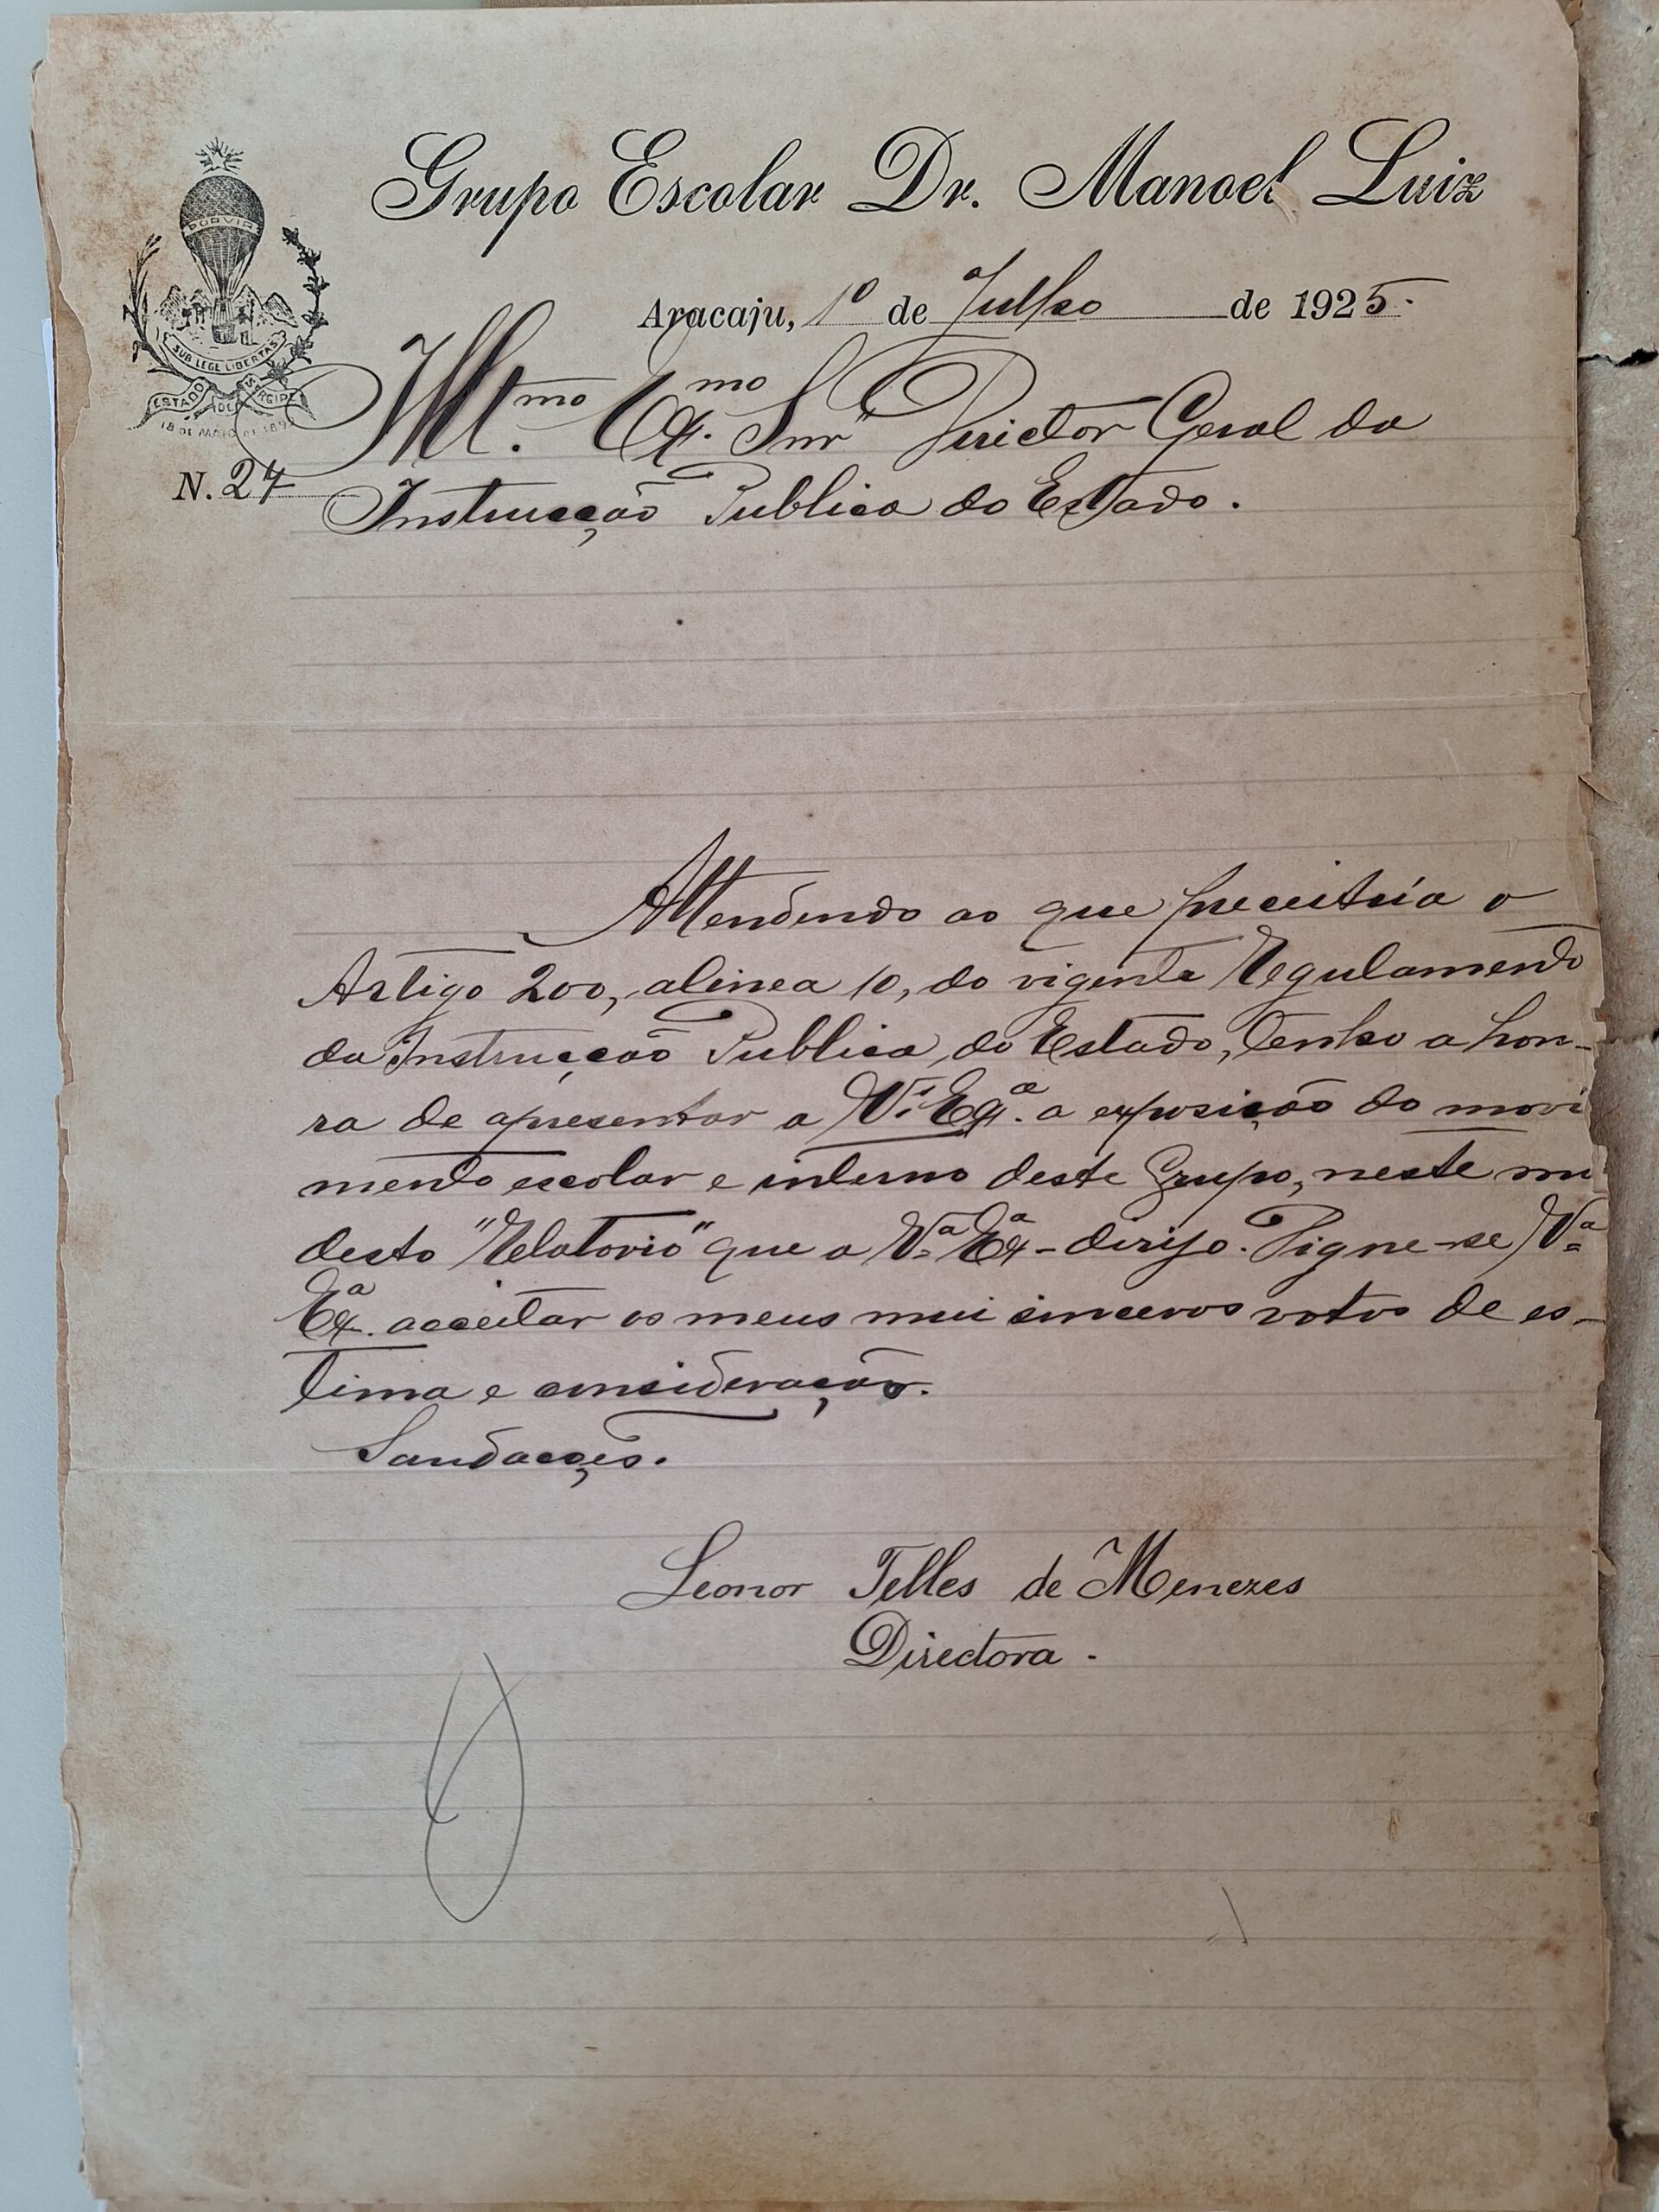 Grupo Escolar Dr. Manoel Luiz
PORVIR
Aracaju, 1º de Julho de 1925.
SUB LEGE LIBERTAS
ESTADO DE SERGIPE
18 DE MAIO DE 1892
Illmo. Exmo. Snr Director Geral da
N. 24
Instrucção Publica do Estado.
Attendendo ao que preceitúa o
Artigo 200, alinea 10, do vigente Regulamento
da Instrucção Publica do Estado, tenho a hon-
ra de apresentar a V. Exª. a exposição do movi
mento escolar e interno deste Grupo, neste mo
desto "Relatorio" que a Vª Exª dirijo. Digne-se Vª
Exª. acceitar os meus mui sinceros votos de es-
tima e consideração.
Saudacções.
Leonor Telles de Menezes
Directora.